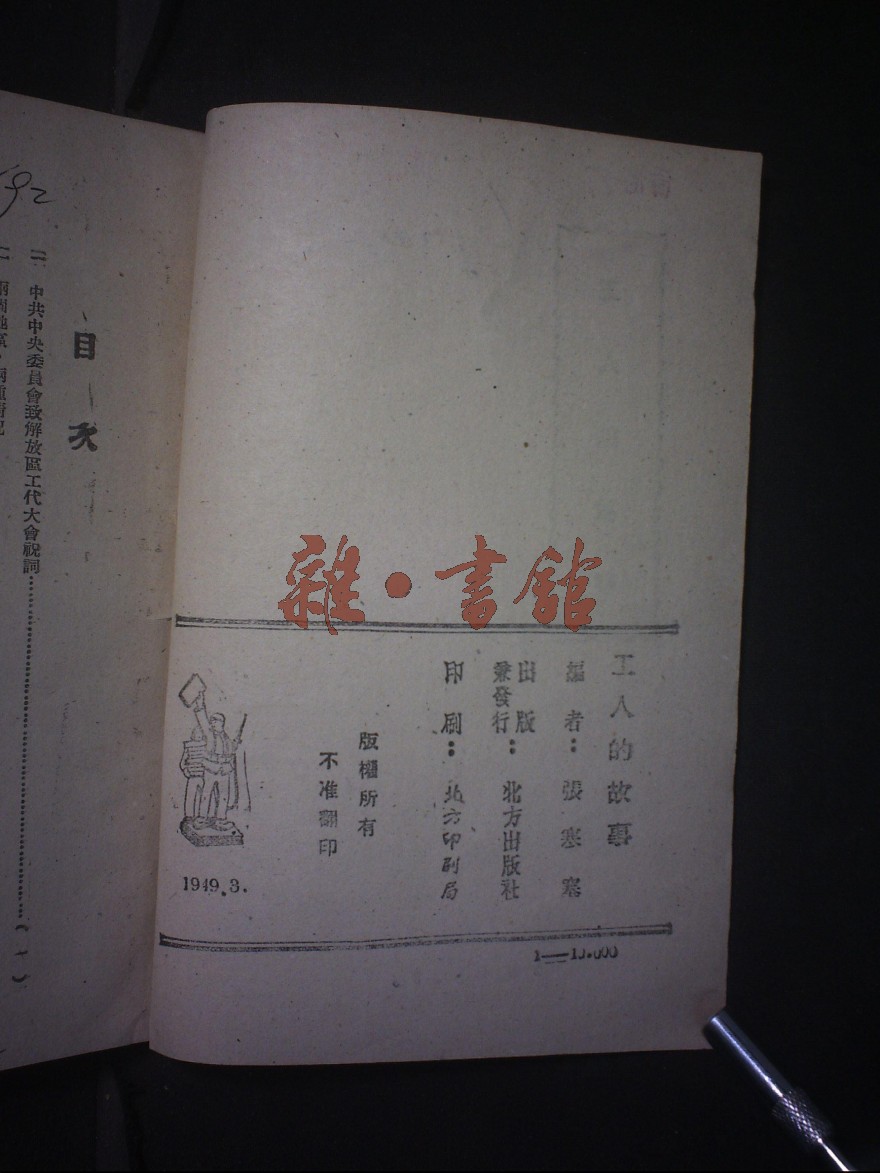 工人的故事
編者：張寒寒
出版
兼發行：北方出版社
印刷：北方印刷局
版權所有
不准翻印
1949.3.
雜·書館
目次
中共中央委員會致解放區工代大會祝詞